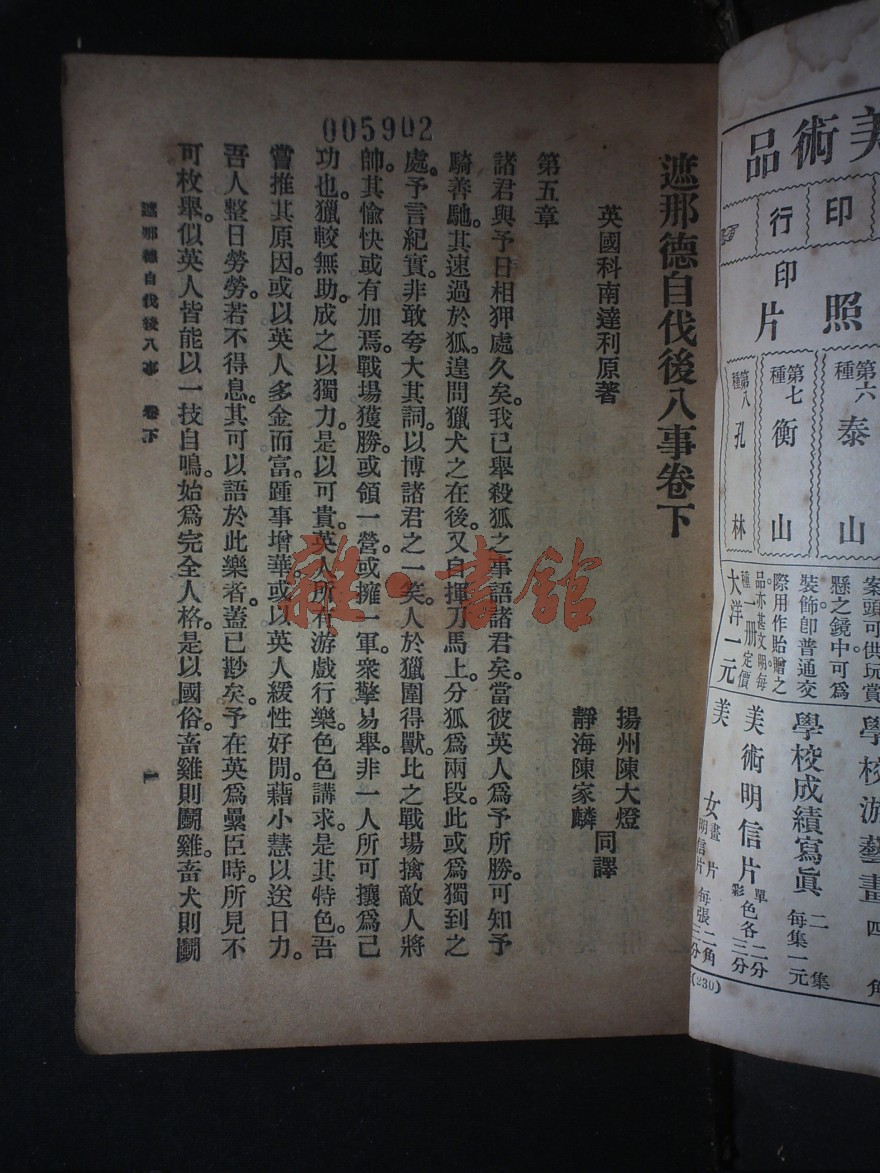 005902
遮那德自伐後八事卷下
英國科南達利原著
揚州陳大燈
靜海陳家麟
同譯
第五章
諸君與予日相狎處久矣。我已舉殺狐之事語諸君矣。當彼英人爲予所勝。可知予
騎善馳。其速過於狐。遑問獵犬之在後。又自揮刀馬上。分狐爲兩段。此或爲獨到之
處。予言紀實。非敢夸大其詞。以博諸君之一矣。人於獵圍得獸。比之戰場擒敵人將
帥。其愉快或有加焉。戰場獲勝。或領一營。或擁一軍。衆擎易舉。非一人所可攘爲己
功也。獵較無助。成之以獨力。是以可貴。英人所有游戲行樂。色色講求。是其特色。吾
嘗推其原因。或以英人多金而富。踵事增華。或以英人緩性好閒。藉小慧以送日力。
吾人整日勞勞。若不得息。其可以語於此樂者。蓋已尠矣。予在英爲纍臣時。所見不
可枚舉。似英人皆能以一技自鳴。始爲完全人格。是以國俗。畜雞則鬭雞。畜犬則鬭
遮那德自伐後八事 卷下
一
雜·書館
美術品
印行
印片
照
第六種 泰山
第七種 衡山
第八種 孔林
案頭可供玩賞
懸之鏡中可爲
裝飾卽普通交
際用作貽贈之
品。亦甚文明。每
種一册定價
大洋一元
學校游藝畫 四角
學校成績寫眞 二集 每集一元
美術明信片 單色各二分 彩三分
美女畫片 每張二角
明信片 三分
(230)